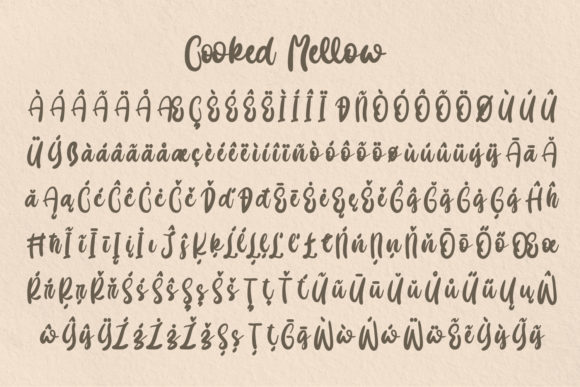 Cooked Mellow
À Á Â Ã Ä Å Æ Ç È É Ê Ë Ì Í Î Ï Ð Ñ Ò Ó Ô Õ Ö Ø Ù Ú Û
Ü Ý ß à á â ã ä å æ ç è é ê ë ì í î ï ñ ò ó ô õ ö ø ù ú û ü ý ÿ Ā ā Ă
ă Ą ą Ć ć Ĉ ĉ Ċ ċ Č č Ď ď Đ đ Ē ē Ė ė Ę ę Ě ě Ĝ ĝ Ğ ğ Ġ ġ Ģ ģ Ĥ ĥ
Ħ ħ Ĩ ĩ Ī ī Į į İ ı Ĵ ĵ Ķ ķ Ĺ ĺ Ļ ļ Ľ ľ Ł ł Ń ń Ņ ņ Ň ň Ō ō Ő ő Œ œ
Ŕ ŕ Ŗ ŗ Ř ř Ś ś Ŝ ŝ Ş ş Š š Ţ ţ Ť ť Ũ ũ Ū ū Ŭ ŭ Ů ů Ű ű Ų ų Ŵ
ŵ Ŷ ŷ Ÿ Ź ź Ż ż Ž ž Ș ș Ț ț Ḡ ḡ Ẁ ẁ Ẃ ẃ Ẅ ẅ Ẽ ẽ Ỳ ỳ Ỹ ỹ